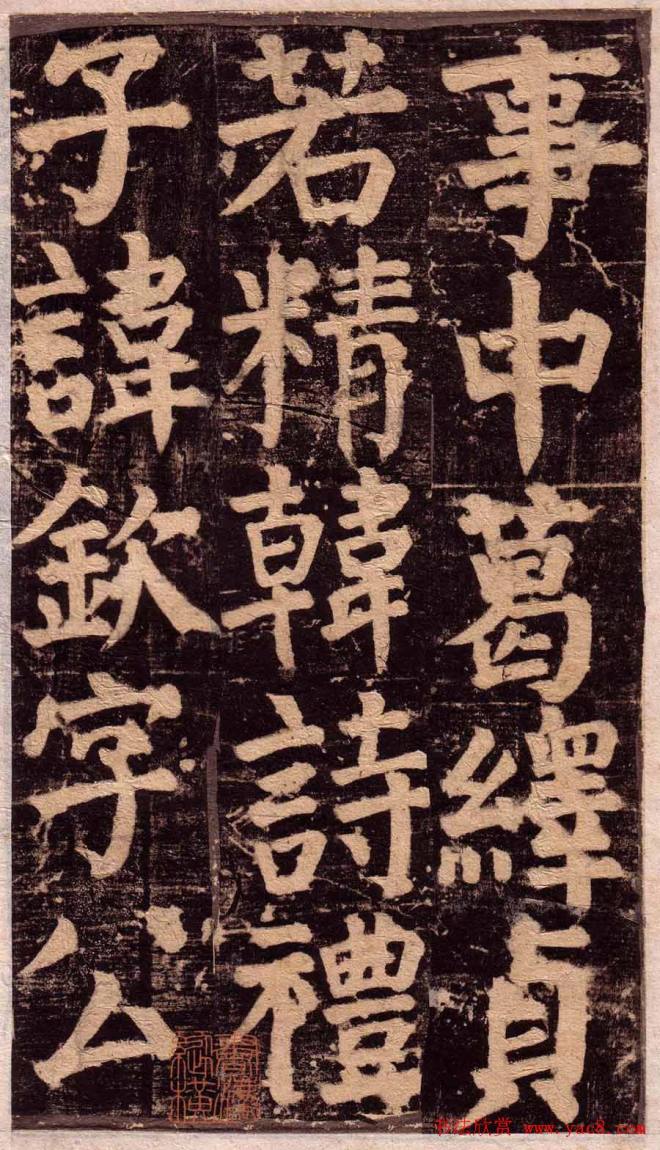 事中葛繹貞
若精韓詩禮
子諱欽字公
书法欣赏 www.yac8.com